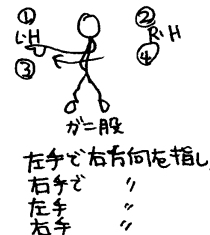 ① ②
L·H R·H
③ ④
ガニ股
左手で右方向を指し
右手で 〃
左手 〃
右手 〃